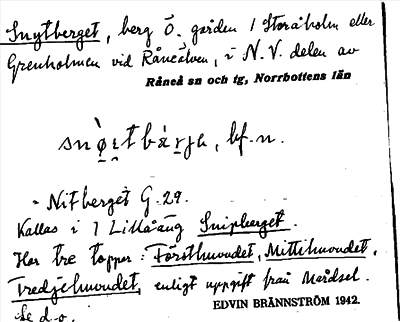 Snytberget, berg Ö. gården 1 Storåholm eller
Grenholmen vid Råneälven, i N.V. delen av
Råneå sn och tg, Norrbottens län
bf. n.
Nitberget G. 29.
Kallas i 1 Lillåäng Snipberget.
Har tre toppar: Försthuvudet, Mitthuvudet,
Tredjehuvudet, enligt uppgift från Mårdsel.
Se d.o.
EDVIN BRÄNNSTRÖM 1942.